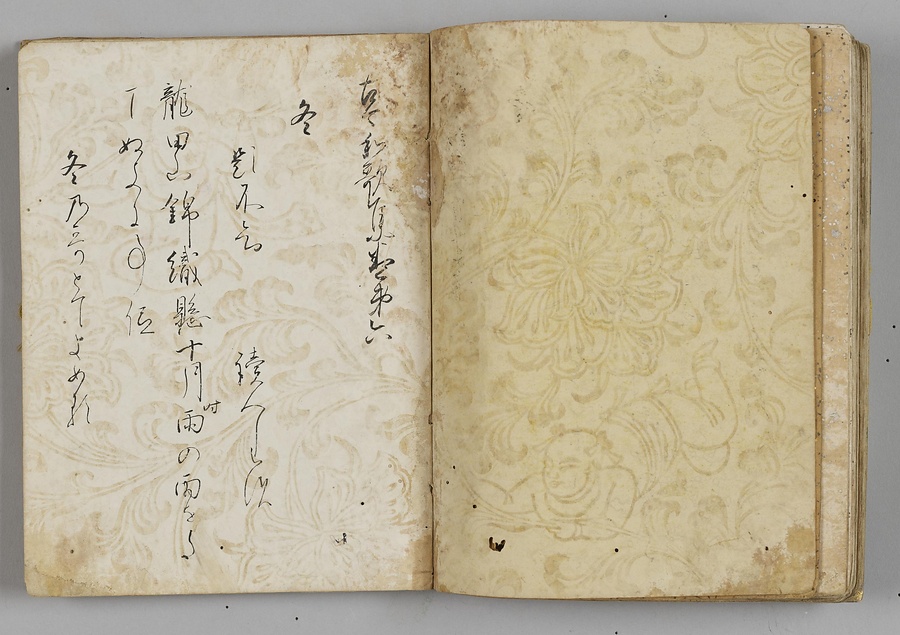 古今和歌集巻第六
冬
題不知　讀人しらす
龍田山錦織懸十月時雨の雨をた
てぬきに
冬乃哥とてよめる